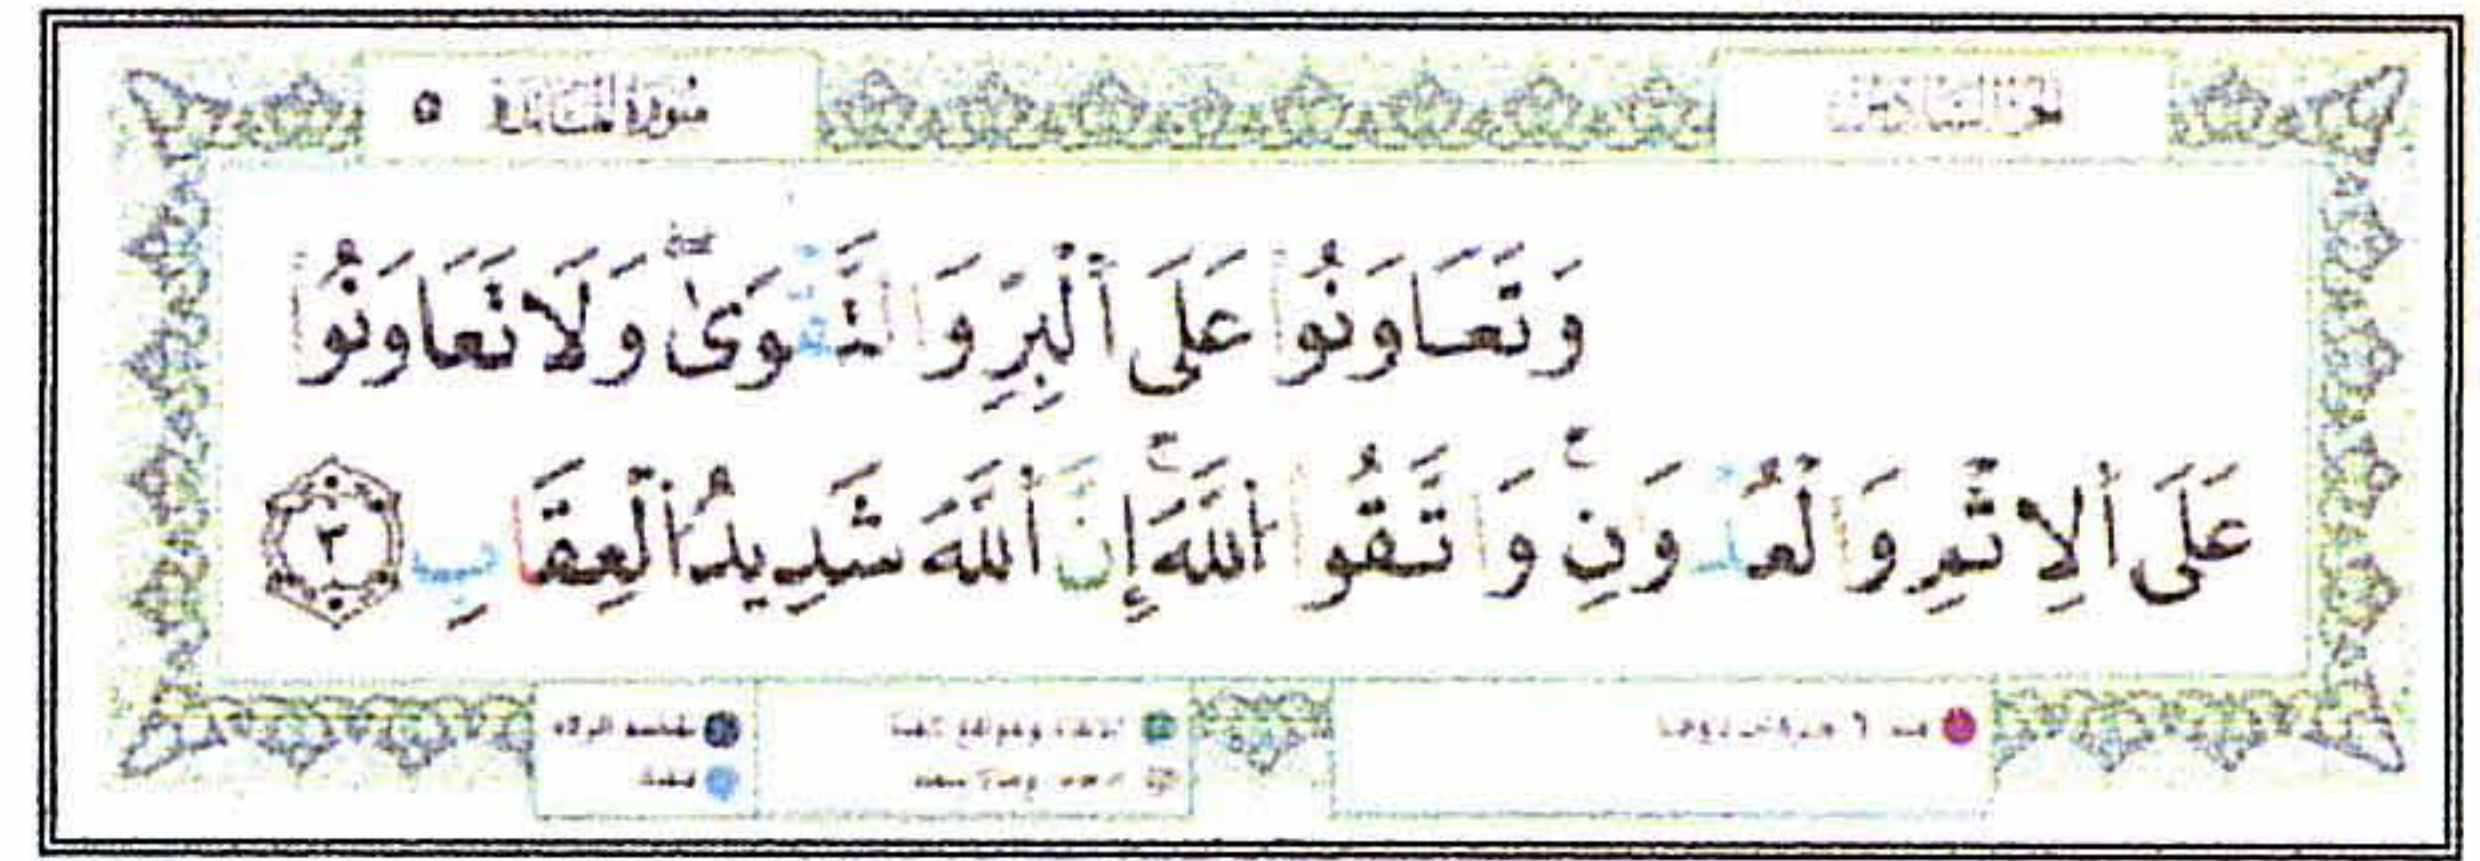 سورة المائدة ٥
وَتَعَاوَنُوا عَلَى ٱلْبِرِّ وَالتَّقْوَىٰ ۖ وَلَا تَعَاوَنُوا
عَلَى ٱلْاِثْمِ وَالْعُدْوَنِ ۚ وَاتَّقُوا اللَّهَ ۖ إِنَّ ٱللَّهَ شَدِيدُ ٱلْعِقَابِ ٢
قلقلة